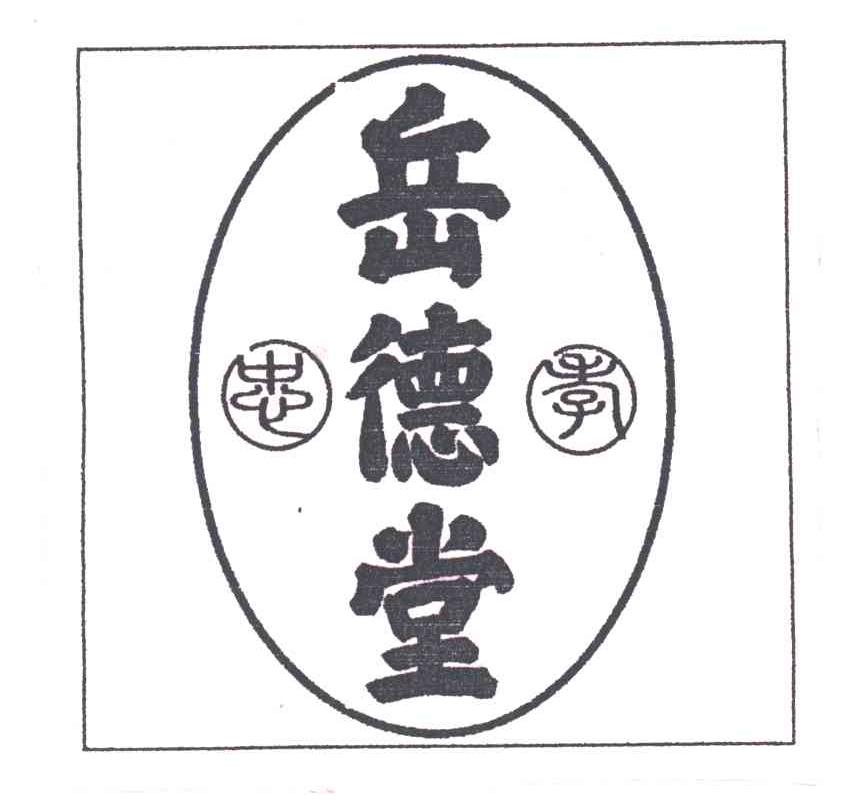 岳德堂
忠
孝